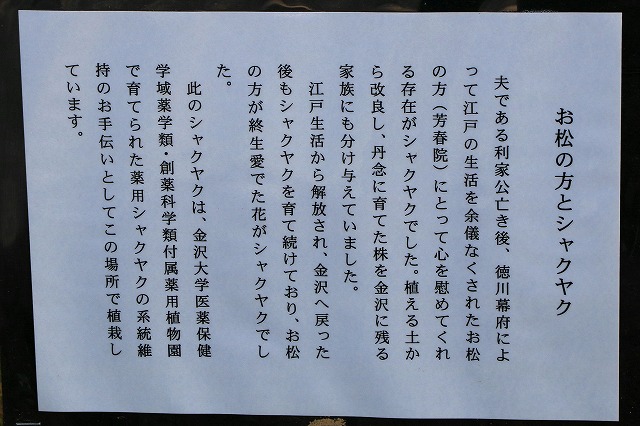 お松の方とシャクヤク
夫である利家公亡き後、徳川幕府によ
って江戸の生活を余儀なくされたお松
の方（芳春院）にとって心を慰めてくれ
る存在がシャクヤクでした。植える土か
ら改良し、丹念に育てた株を金沢に残る
家族にも分け与えていました。
江戸生活から解放され、金沢へ戻った
後もシャクヤクを育て続けており、お松
の方が終生愛でた花がシャクヤクでし
た。
此のシャクヤクは、金沢大学医薬保健
学域薬学類・創薬科学類付属薬用植物園
で育てられた薬用シャクヤクの系統維
持のお手伝いとしてこの場所で植栽し
ています。